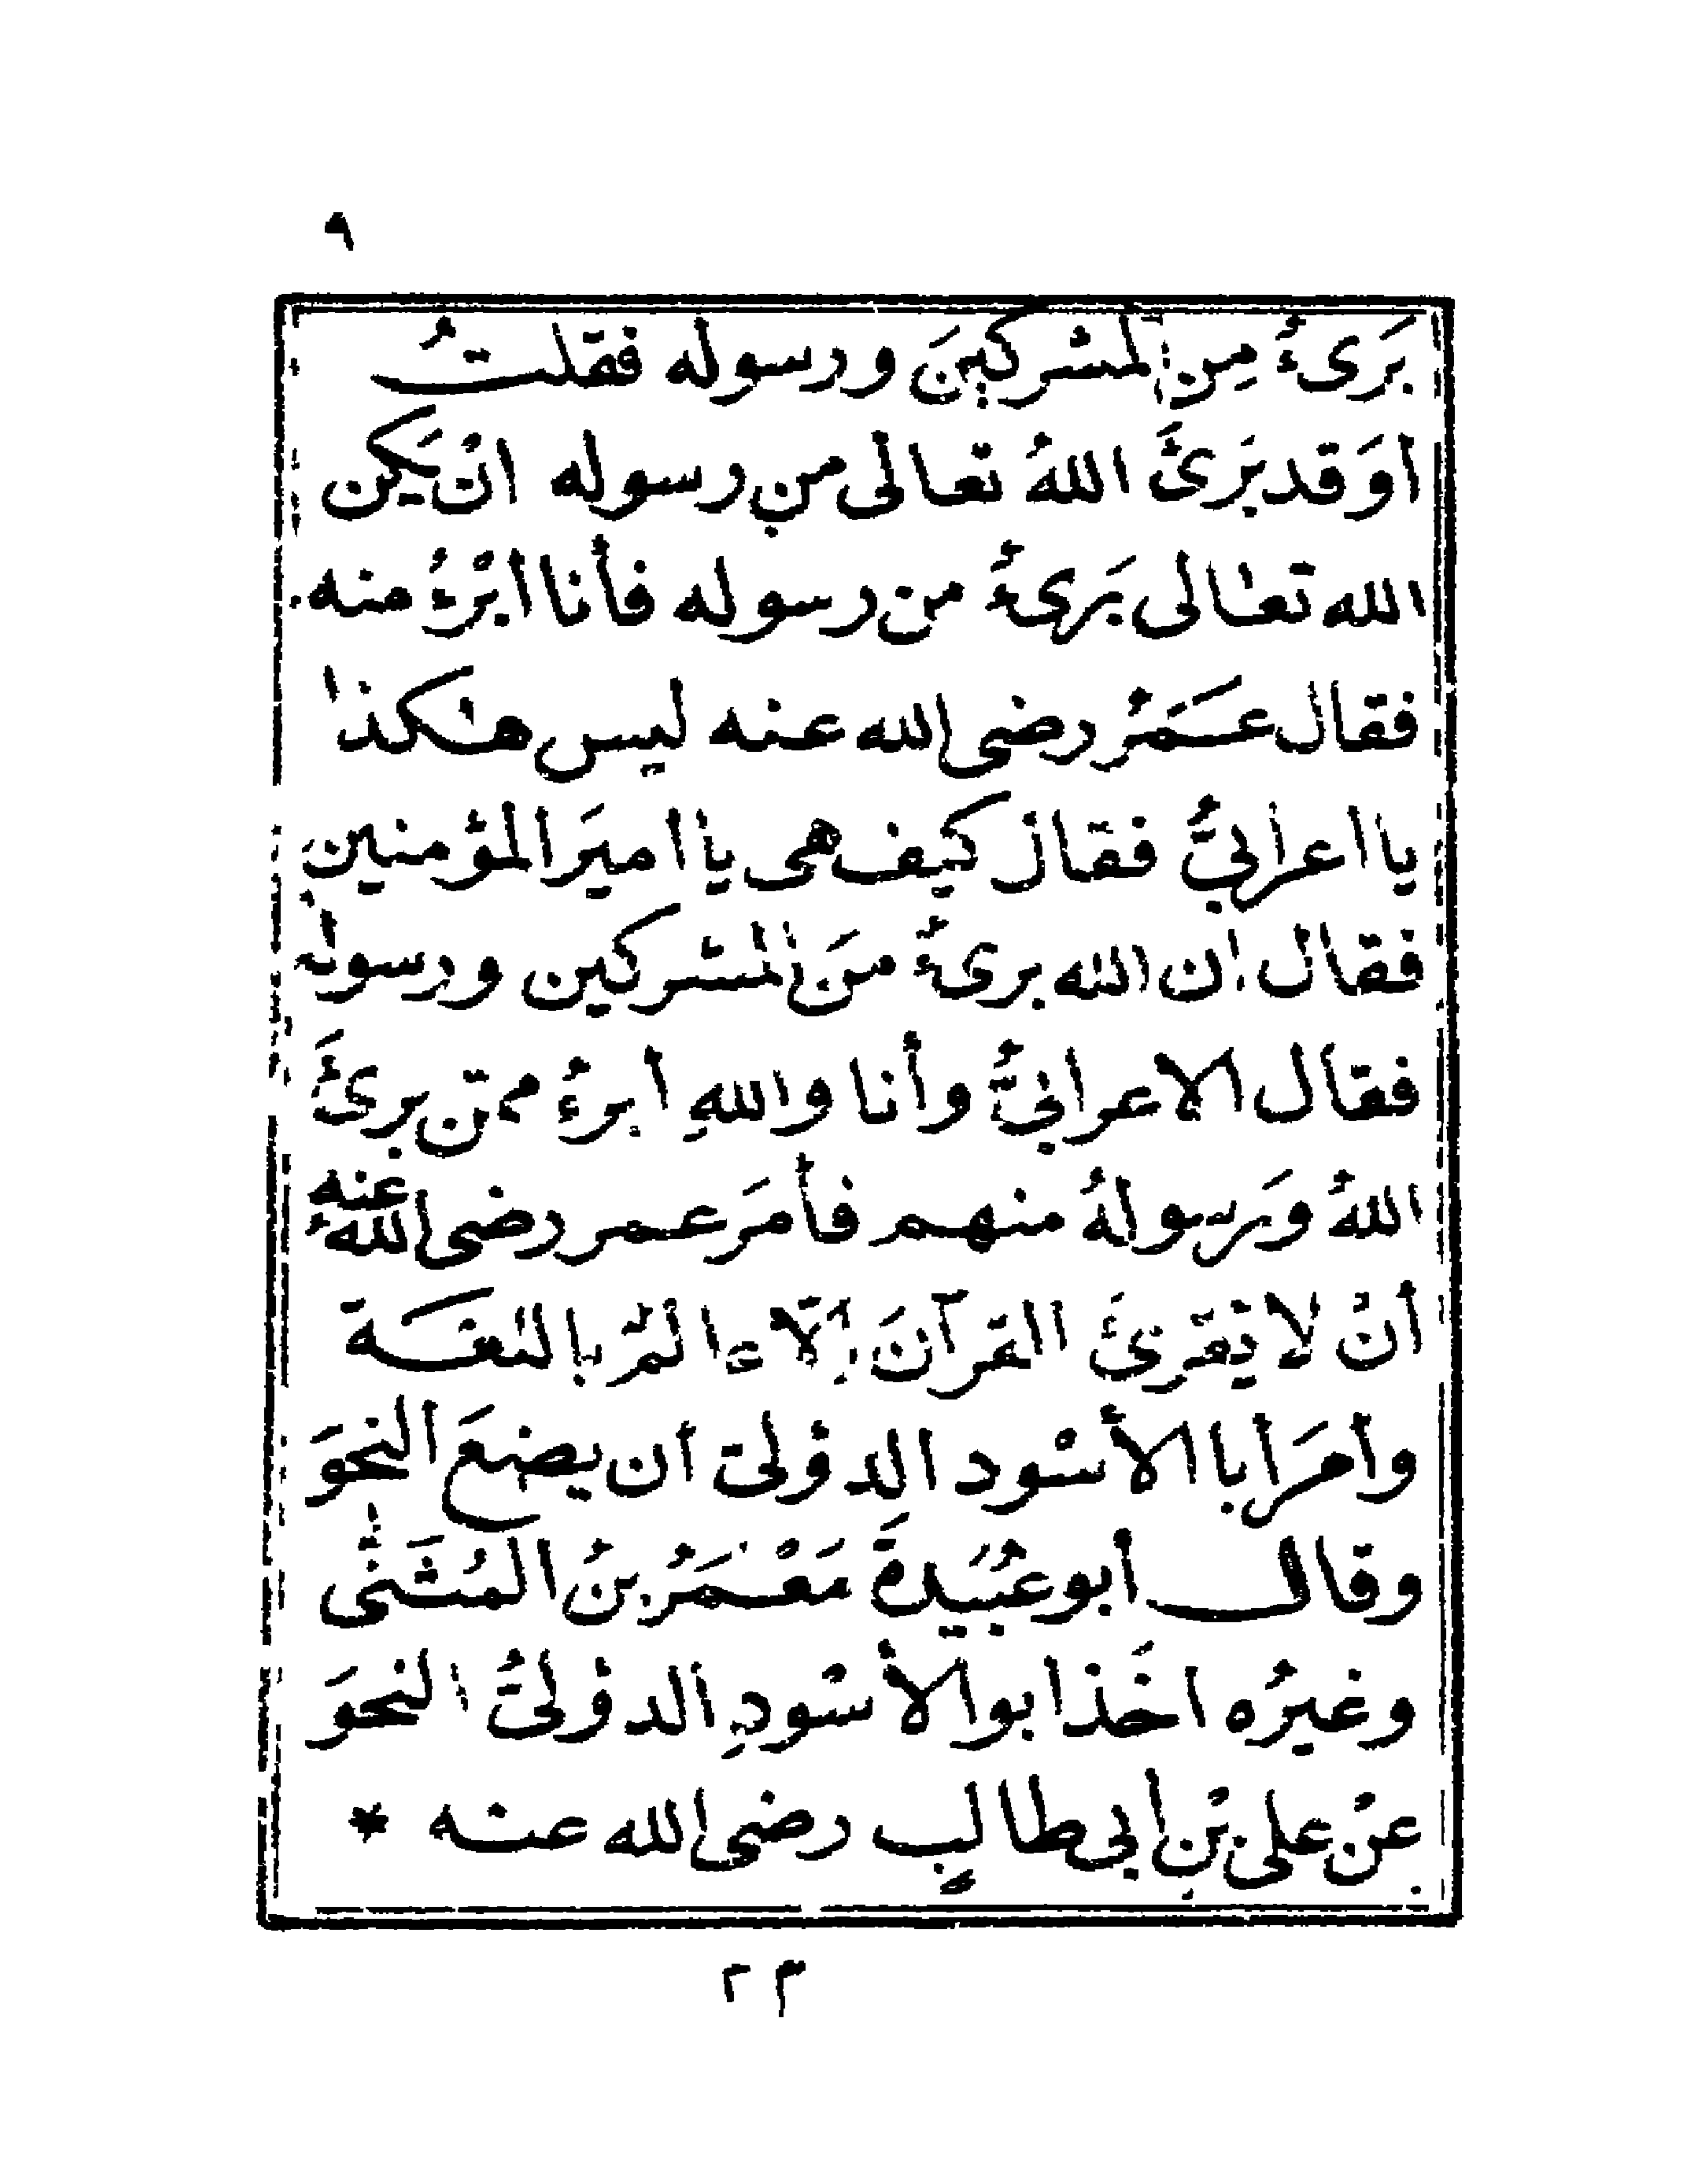 ٩
بَرىءٌ مِن المشركينَ ورسوله فقلتُ
أوَقد بَرئَ اللهُ تعالى من رسوله انْ يَكن
الله تعالى بَرىءٌ من رسوله فأنا ابْرءُ منه
فقال عمَرُ رضى الله عنه ليس هٰكذا
يا اعرابيُّ فقال كيف هى يا اميَر المؤمنين
فقال ان الله برىءٌ منَ المشركين ورسولُه
فقال الاعرابيُّ وأنا واللهِ أبرءُ ممّن برئَ
اللهُ وَرسولهُ منهم فأمَر عمر رضى اللهُ عنه
أنْ لا يقرئَ القرآنَ إلّا عالمٌ باللغة
وأمَر أبا الأسْود الدؤلىّ أن يضعَ النحوَ
وقال أبو عُبَيدةَ مَعْمَرُ بنُ المُثَنّٰى
وغيرُه اخَذ ابو الأسْودِ الدؤلىُّ النحوَ
عنْ علىِ بْنِ أبى طالبٍ رضى الله عنه *
٢ م